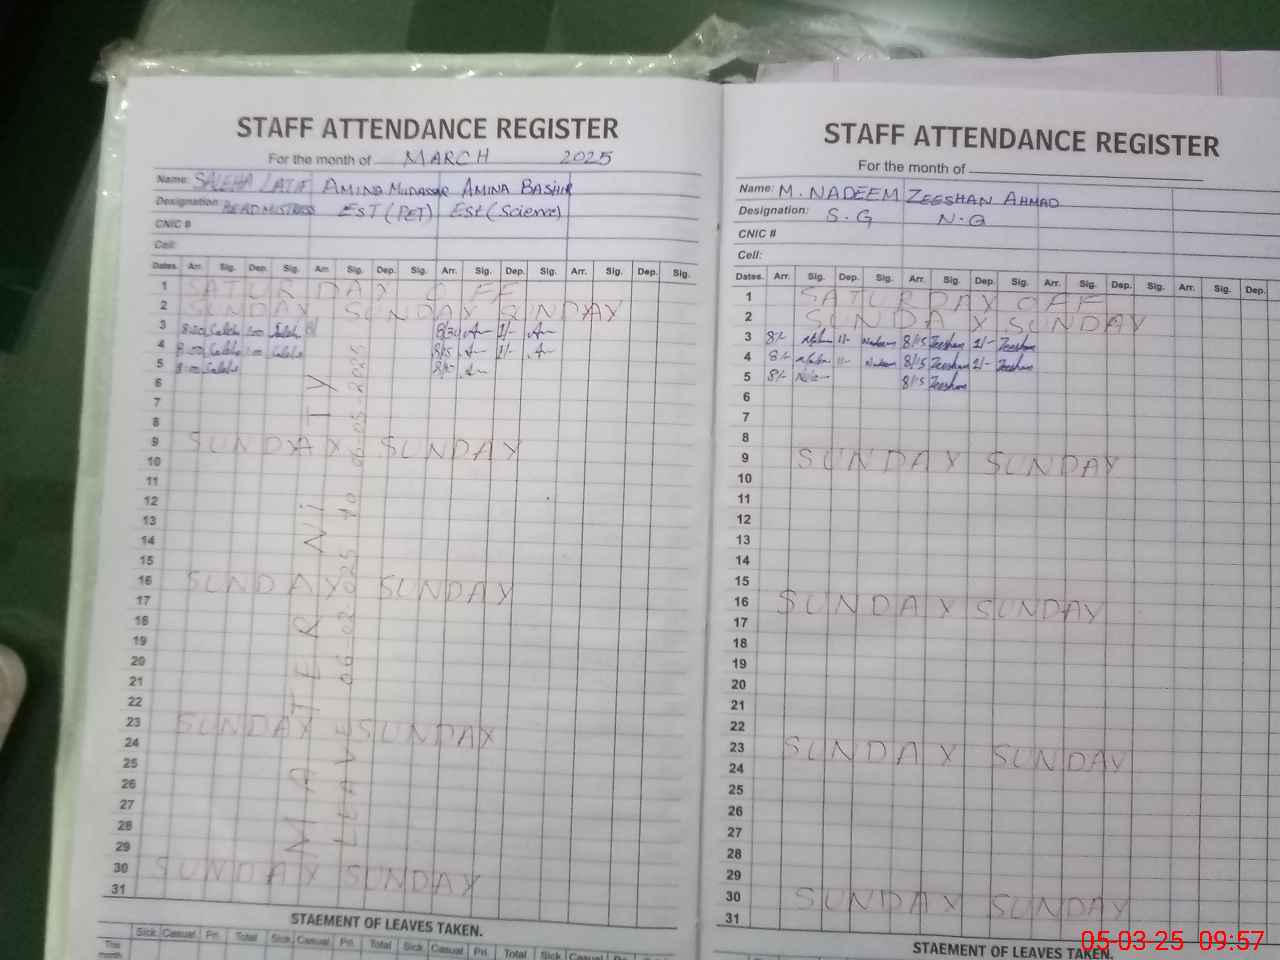 STAFF ATTENDANCE REGISTER
For the month of MARCH 2025
Name: SALEHA LATIF AMINA MUDASSAR AMINA BASHIR
Designation: HEADMISTRESS EST (PET) Est (Science)
CNIC #
Cell:
Dates. Arr. Sig. Dep. Sig. Arr. Sig. Dep. Sig. Arr. Sig. Dep. Sig. Arr. Sig. Dep. Sig.
1 SATURDAY OFF
2 SUNDAY SUNDAY SUNDAY
3 8:00 Saleh 1:00 Saleh 8/30 1/-
4 8:00 Saleha 1:00 Saleha 8/15 1/-
5 8:00 Saleha
6
7
8
9 SUNDAY SUNDAY
10
11
12
13
14
15
16 SUNDAY SUNDAY
17
18
19
20
21
22
23 SUNDAY SUNDAY
24
25
26
27
28
29
30 SUNDAY SUNDAY
31
MATERNiTY
LEAVE 06 02 2025 TO
STAEMENT OF LEAVES TAKEN.
Sick. Casual. Pri. Total Sick. Casual Pri. Total Sick. Casual Pri. Total Sick. Casual
This month
STAFF ATTENDANCE REGISTER
For the month of
Name: M. NADEEM ZEESHAN AHMAD
Designation: S.G N.Q
CNIC #
Cell:
Dates. Arr. Sig. Dep. Sig. Arr. Sig. Dep. Sig. Arr. Sig. Dep. Sig. Arr. Sig. Dep.
1 SATURDAY OFF
2 SUNDAY SUNDAY
3 8/- 1/- Nadeem 8/15 Zeeshan 1/- Zeeshan
4 8/- 1/- Nadeem 8/15 Zeeshan 1/- Zeeshan
5 8/- 8/15 Zeeshan
6
7
8
9 SUNDAY SUNDAY
10
11
12
13
14
15
16 SUNDAY SUNDAY
17
18
19
20
21
22
23 SUNDAY SUNDAY
24
25
26
27
28
29
30 SUNDAY SUNDAY
31
STAEMENT OF LEAVES TAKEN.
05-03-25 09:57